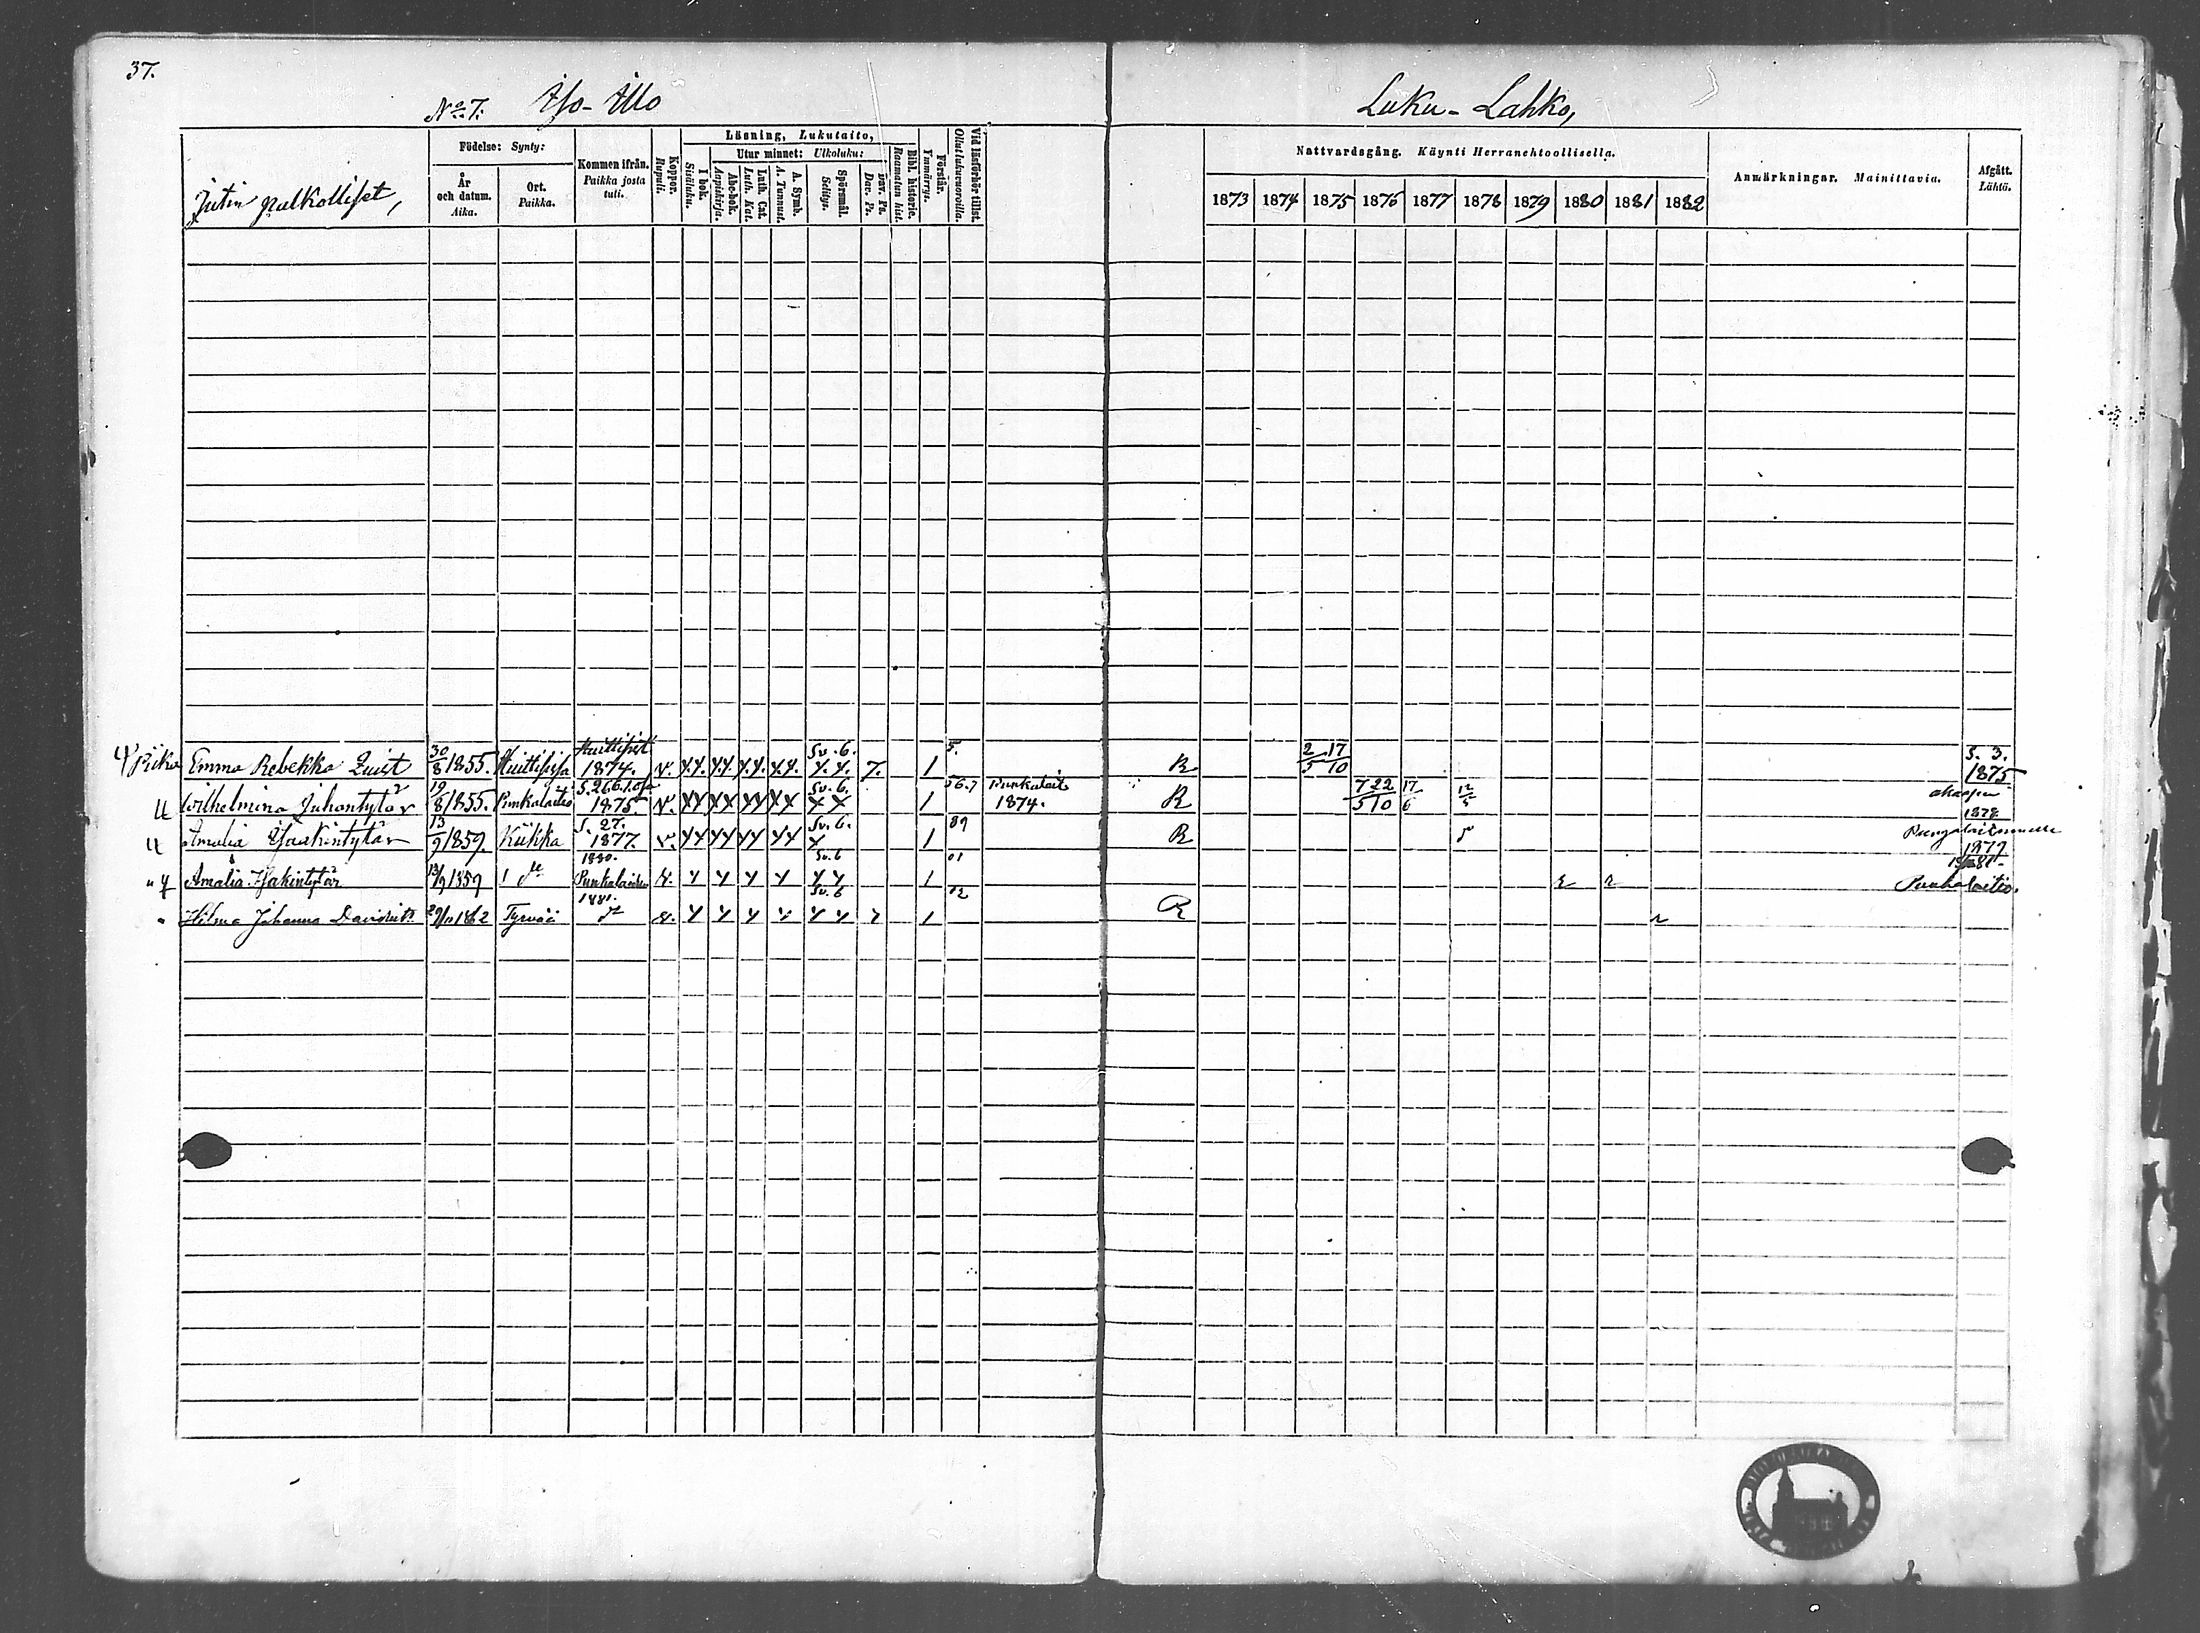 37.
No 7. Iso-Illo Luku-Lahko,
Jutin palkolliset,
Födelse: Synty:
År och datum. Aika.
Ort. Paikka.
Kommen ifrån. Paikka josta tuli.
Koppor. Rupuli.
Läsning, Lukutaito,
I bok. Sisäluku.
Utur minnet: Ulkoluku:
Abc-bok. Aapiskirja.
Luth. Cat. Luth. Kat.
A. Symb. A. Tunnust.
Spörsmål. Selitys.
Dav. Ps. Dav. Ps.
Bibl. historie. Raamatun hist.
Förstår. Ymmärrys.
Vid läsförhör tillst. Ollut lukuvuoroilla.
Nattvardsgång. Käynti Herranehtoollisella.
1873 1874 1875 1876 1877 1878 1879 1880 1881 1882
Anmärkningar. Mainittavia.
Afgått. Lähtö.
Piika Emma Rebekka Quist 30/8 1855. Huittisissa Huittiset 1874. v. Sv. 6. 7. 1 5. R 2/5 17/10 S. 3. 1875
Wilhelmina Juhantytär 19/8 1855. Punkalaitio 1875. v. Sv. 6. 1 56.7 Punkalait 1874. R 7 22/5 10 17/6 12/5 1878
Amalia Isaakintytär 13/9 1859. Kiikka S. 27. 1877. v. Sv. 6. 1 89 R 1879
Amalia Isakintytär 13/9 1859 do 1880. Punkalaidun v. Sv. 6 1 01 r r 1881. Punkalaitio.
Hilma Johanna Davidint. 29/10 1862 Tyrvää 1881. do v. Sv. 6 7 1 02 R r